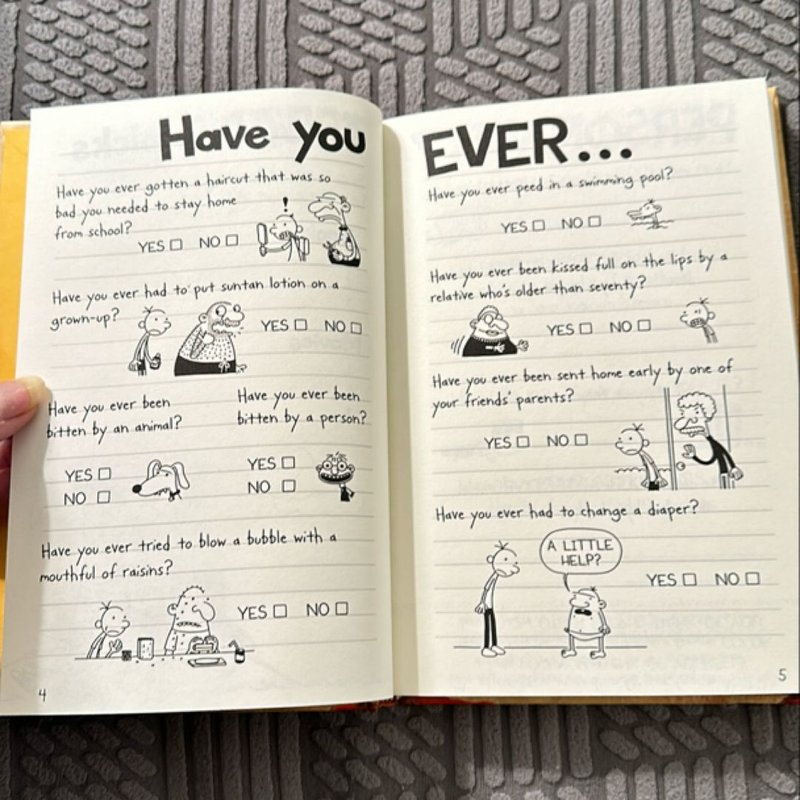 Have you
Have you ever gotten a haircut that was so
bad you needed to stay home
from school?
YES □ NO □
!
Have you ever had to put suntan lotion on a
grown-up?
YES □ NO □
Have you ever been
bitten by an animal?
YES □
NO □
Have you ever been
bitten by a person?
YES □
NO □
Have you ever tried to blow a bubble with a
mouthful of raisins?
YES □ NO □
4
EVER...
Have you ever peed in a swimming pool?
YES □ NO □
Have you ever been kissed full on the lips by a
relative who's older than seventy?
YES □ NO □
Have you ever been sent home early by one of
your friends' parents?
YES □ NO □
Have you ever had to change a diaper?
A LITTLE
HELP?
YES □ NO □
5